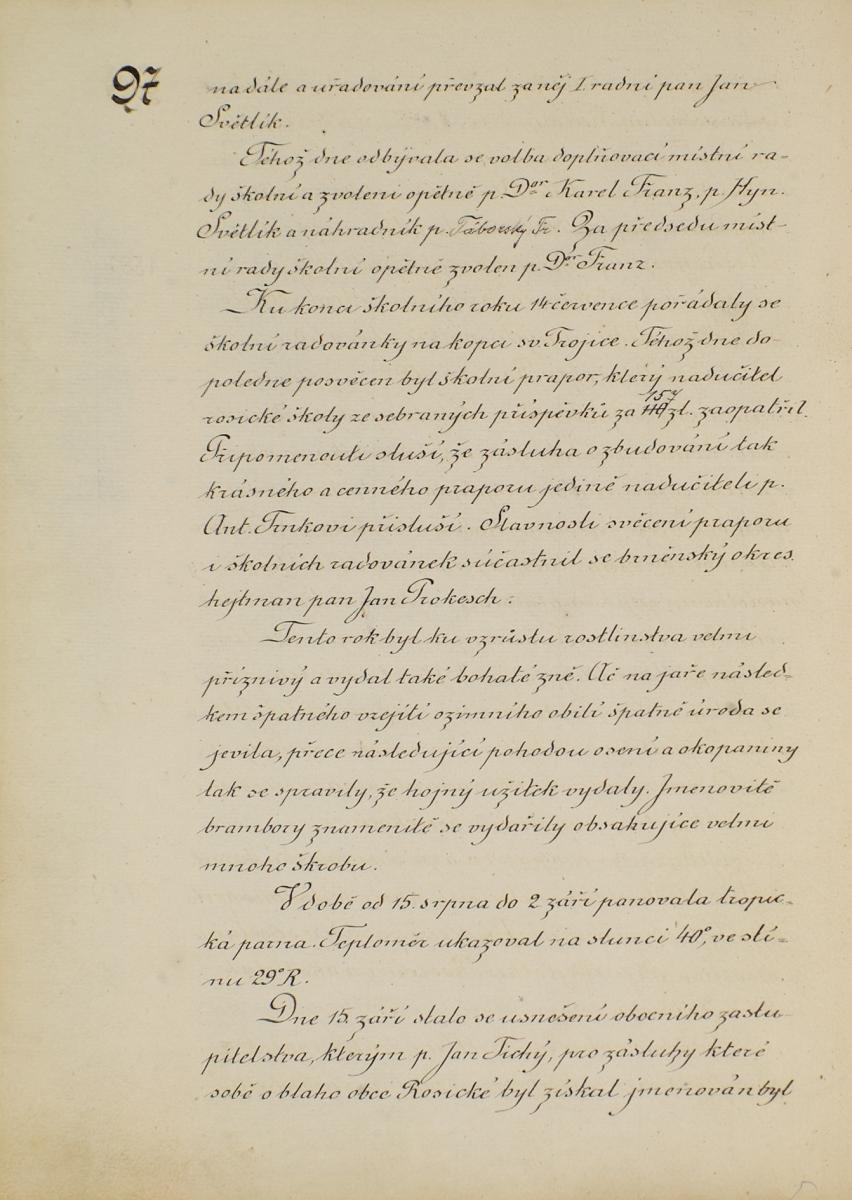 97
na dále a uřadování převzal za něj I. radní pan Jan
Světlík.
Téhož dne odbývala se volba doplňovací místní ra-
dy školní a zvoleni opětně p. Dor Karel Franz, p. Hyn.
Světlík a náhradník p. Táborský Fr. Za předsedu míst-
ní rady školní opětně zvolen p. Dor Franz.
Ku konci školního roku 14 července pořádaly se
školní radovánky na kopci sv Trojice. Téhož dne do-
poledne posvěcen byl školní prapor, který nadučitel
rosické školy ze sebraných příspěvků za 157 zl. zaopatřil.
Připomenouti sluší, že zásluha o zbudování tak
krásného a cenného praporu jedině nadučiteli p.
Ant. Trnkovi přísluší. Slavnosti svěcení praporu
i školních radovánek súčastnil se brněnský okres.
hejtman pan Jan Prokesch.
Tento rok byl ku vzrůstu rostlinstva velmi
příznivý a vydal také bohaté zně. Ač na jaře násled-
kem špatného vzejítí ozimního obilí špatně úroda se
jevila, přece následující pohodou osení a okopaniny
tak se spravily, že hojný užitek vydaly. Jmenovitě
brambory znamenitě se vydařily obsahujíce velmi
mnoho škrobu.
V době od 15. srpna do 2 září panovala tropic-
ká parna. Teploměr ukazoval na slunci 40°, ve stí-
nu 29°R.
Dne 15. září stalo se usnešení obecního zastu
pitelstva, kterým p. Jan Tichý, pro zásluhy které
sobě o blaho obce Rosické byl získal jmenován byl